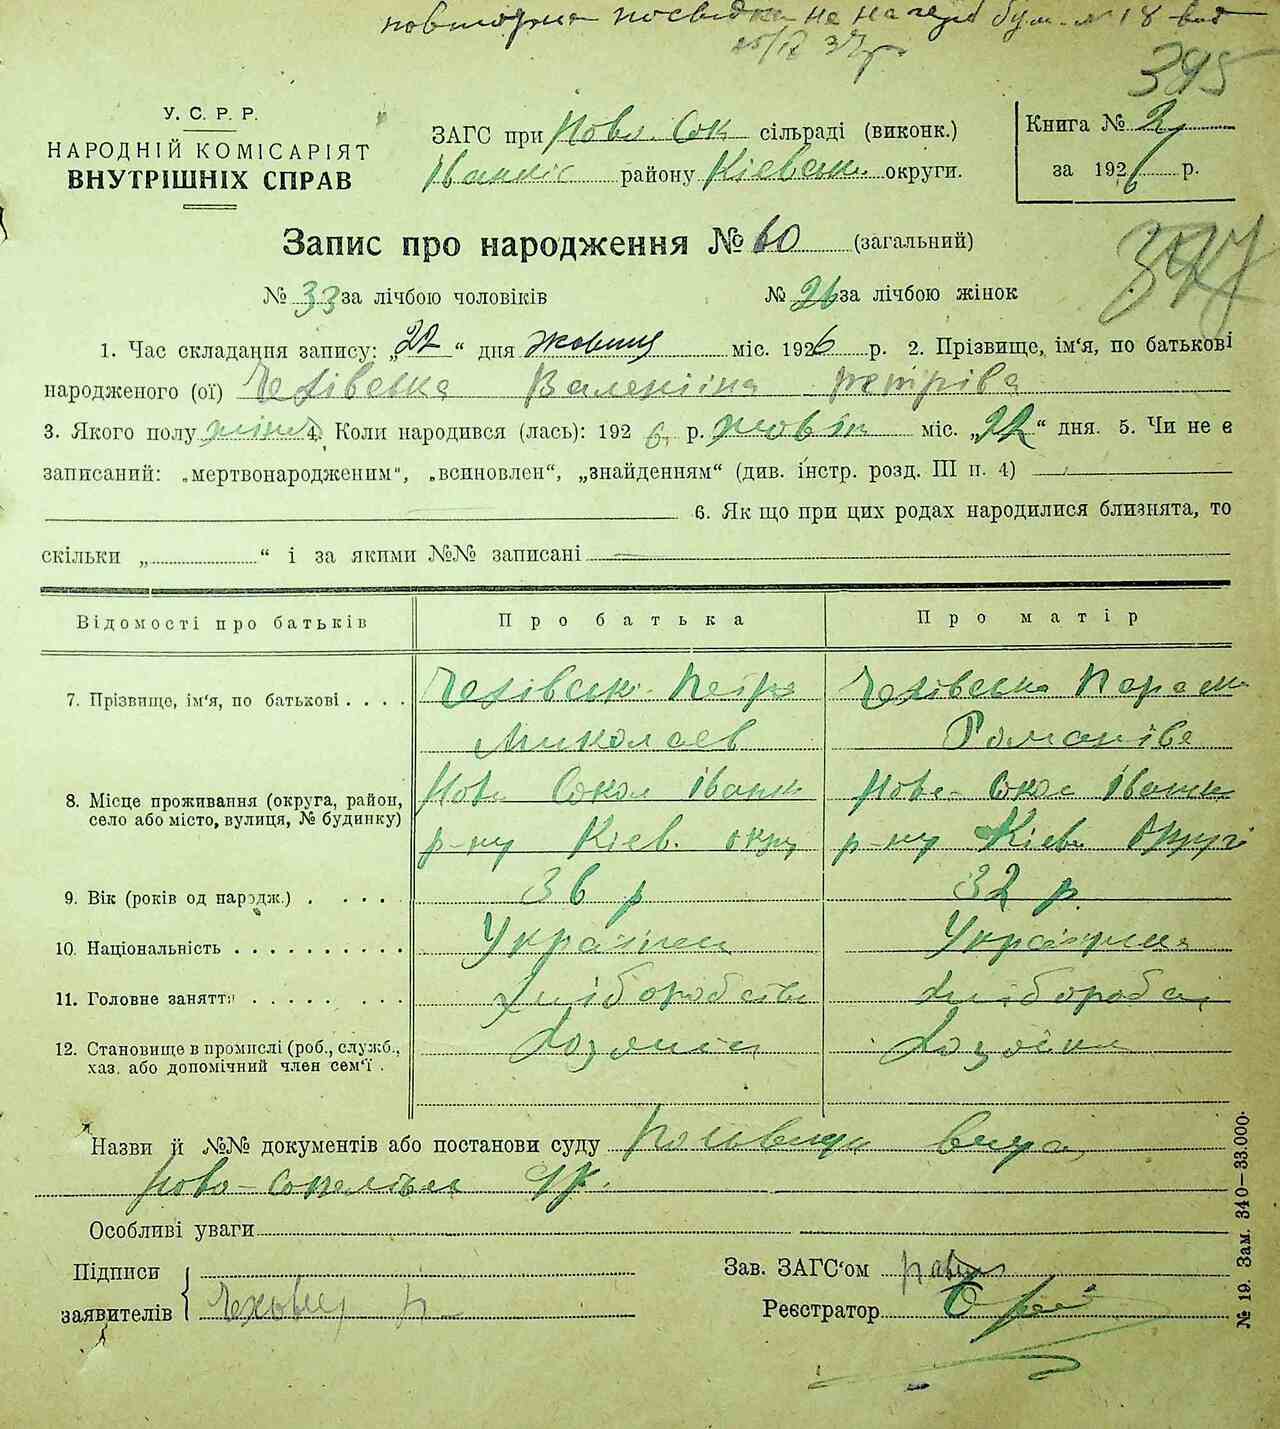 повторна посвідка на
395
У. С. Р. Р.
НАРОДНІЙ КОМІСАРІЯТ
ВНУТРІШНІХ СПРАВ
ЗАГС при Ново. Сок сільраді (виконк.)
Іванків району Київськ. округи.
Книга № 2
за 1926 р.
Запис про народження № 60 (загальний)
№ 33 за лічбою чоловіків № 26 за лічбою жінок
1. Час складання запису: „22“ дня жовтня міс. 1926 р. 2. Прізвище, ім'я, по батькові
народженого (ої) Чехівська Валентіна Петріва
3. Якого полу жіноч 4. Коли народився (лась): 1926, р. жовтн міс. „22“ дня. 5. Чи не є
записаний: „мертвонародженим“, „всиновлен“, „знайденням“ (див. інстр. розд. III п. 4)
6. Як що при цих родах народилися близнята, то
скільки „ “ і за якими №№ записані
Відомості про батьків Про батька Про матір
7. Прізвище, ім'я, по батькові . . . . Чехівськ. Петро Чехівська Параск
Миколаєв Романіва
8. Місце проживання (округа, район, село або місто, вулиця, № будинку) Ново Сокол Іванк Нове- Сокол Іванк
р-ну Київ. окру р-ну Київ. Округі
9. Вік (років од народж.) . . . . 36 р 32 р.
10. Національність . . . . . . . . . . Українец Українка
11. Головне заняття . . . . . . . . Хліборобств Хлібороба
12. Становище в промислі (роб., служб., хаз. або допомічний член сем'ї . Хозяїн Хозяйка
Назви й №№ документів або постанови суду
Ново-Сокольськ
Особливі уваги
Підписи
заявителів
Зав. ЗАГС'ом
Реєстратор
№ 19. Зам. 340—33.000.